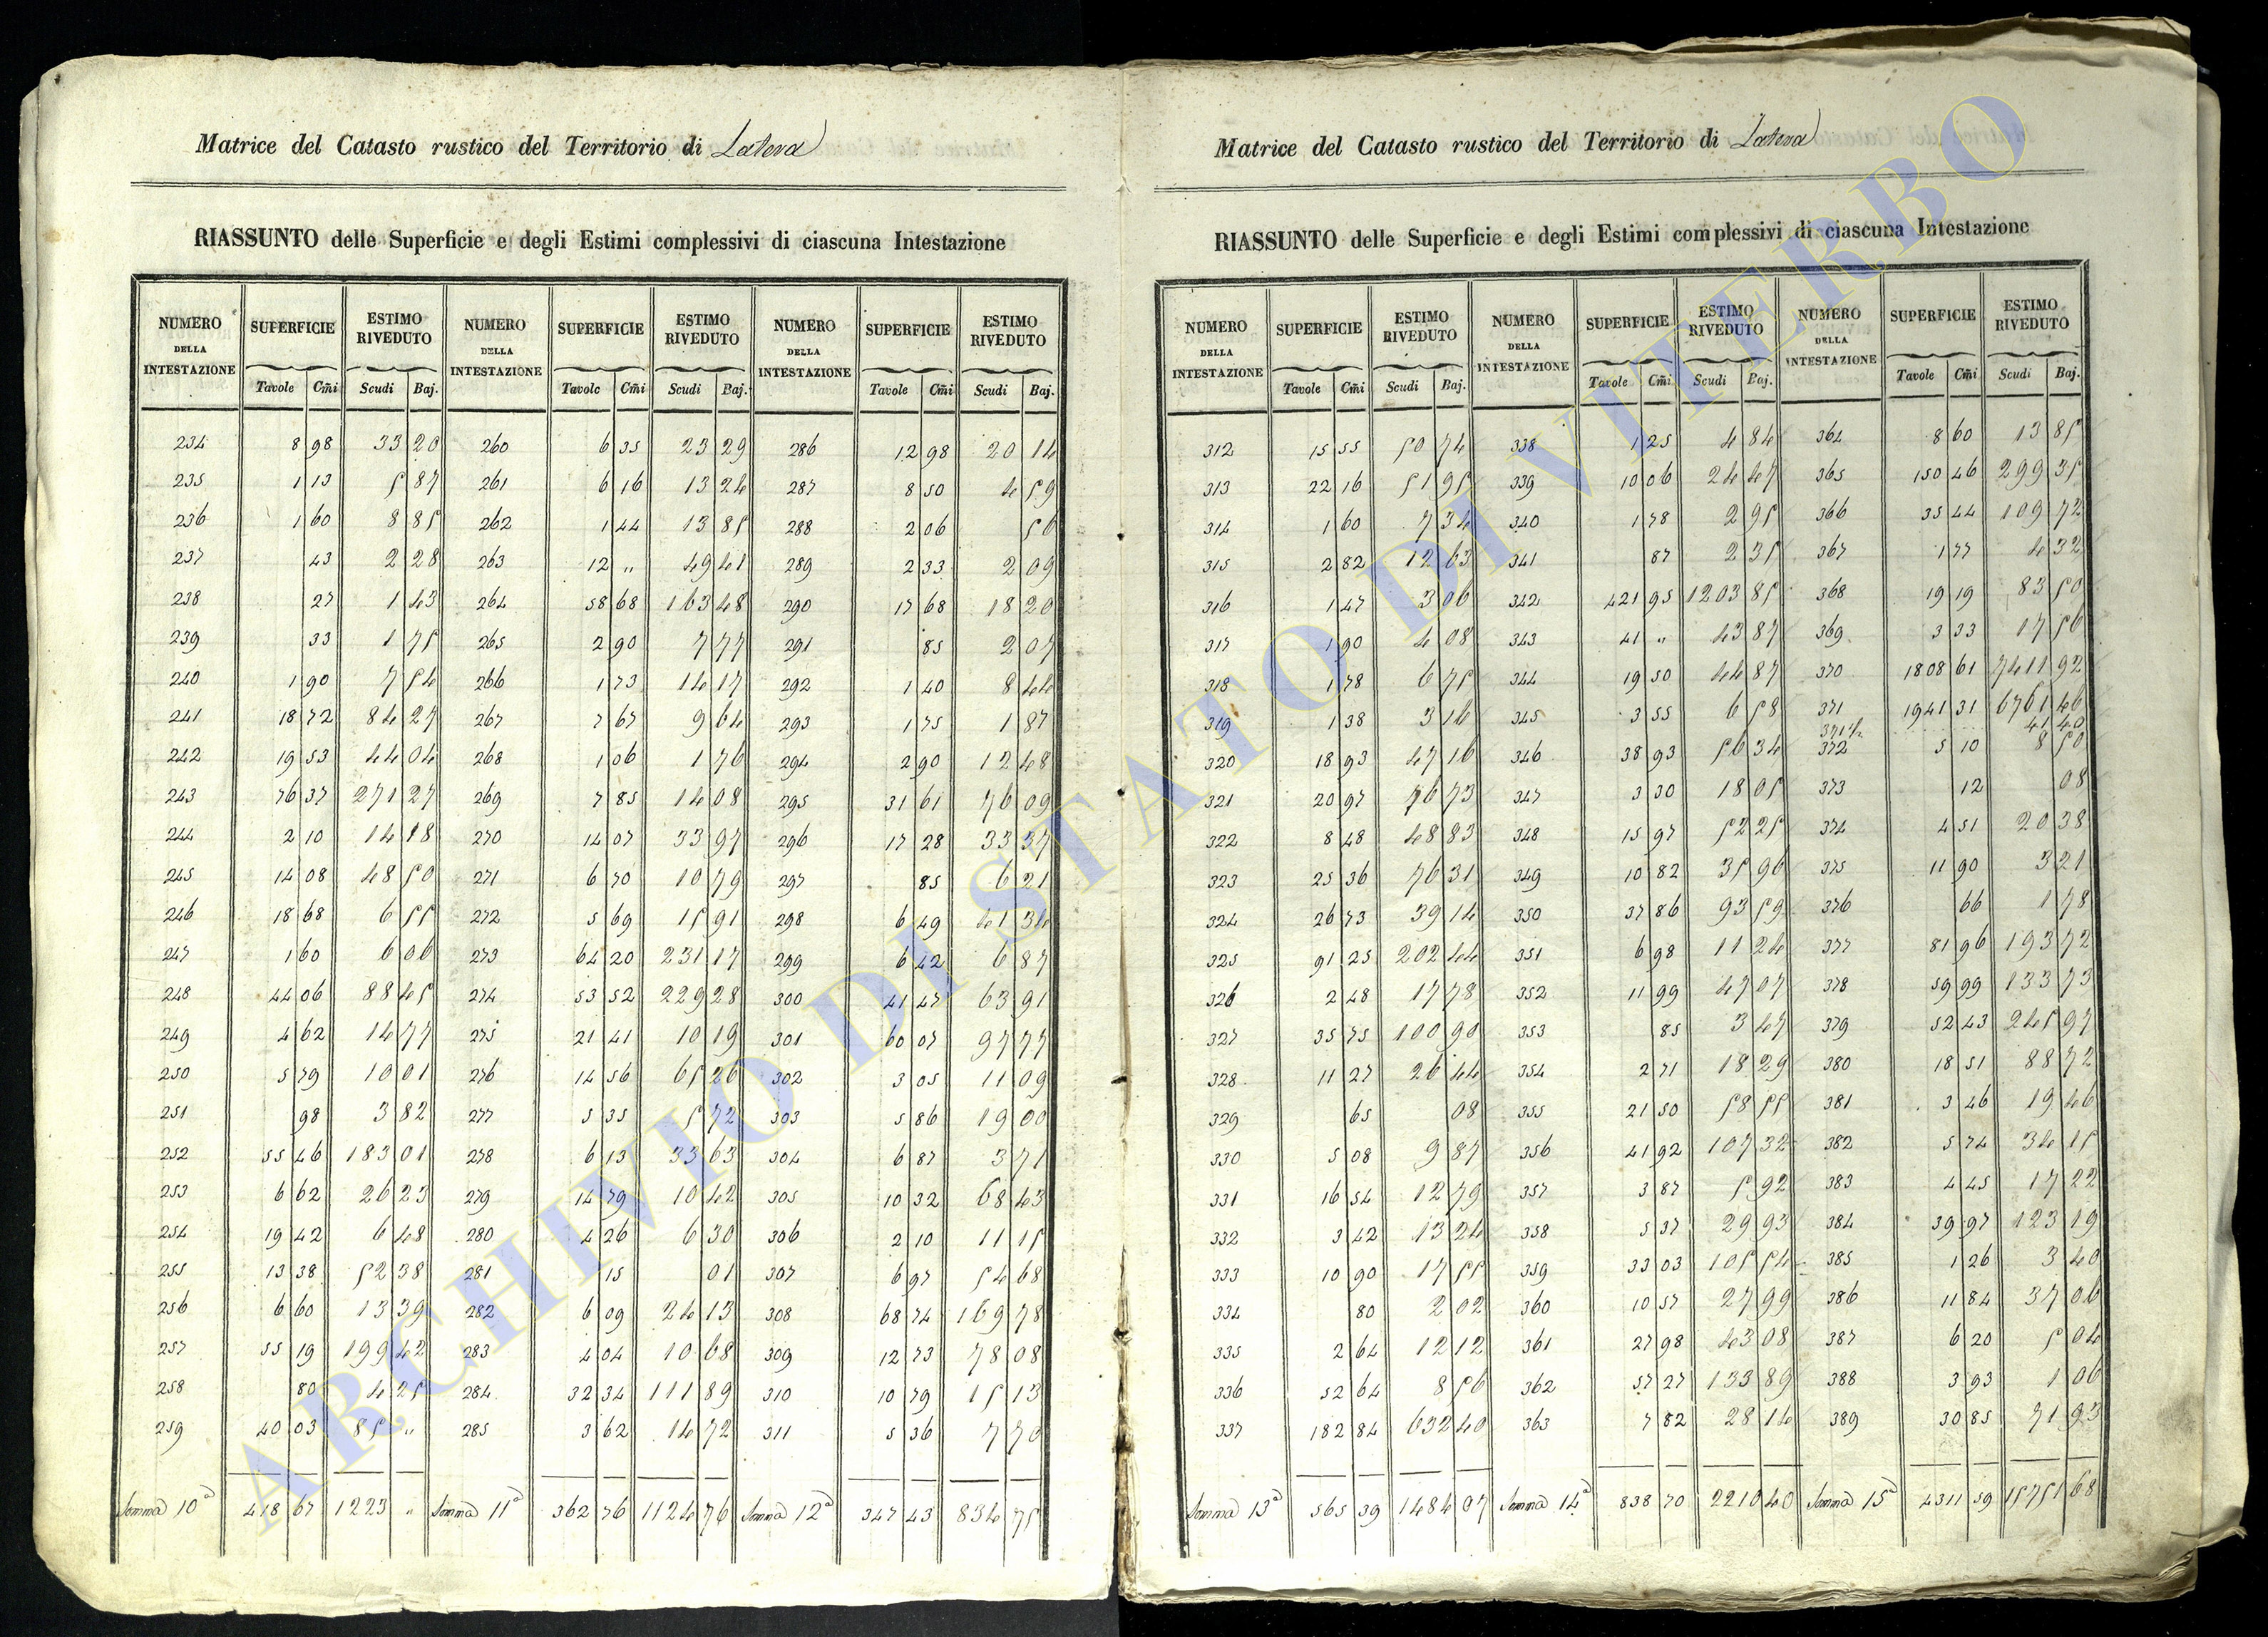 Matrice del Catasto rustico del Territorio di Latera
RIASSUNTO delle Superficie e degli Estimi complessivi di ciascuna Intestazione
NUMERO DELLA INTESTAZIONE SUPERFICIE ESTIMO RIVEDUTO NUMERO DELLA INTESTAZIONE SUPERFICIE ESTIMO RIVEDUTO NUMERO DELLA INTESTAZIONE SUPERFICIE ESTIMO RIVEDUTO
Tavole Cm̃i Scudi Baj. Tavole Cm̃i Scudi Baj. Tavole Cm̃i Scudi Baj.
234 8 98 33 20 260 6 35 23 29 286 12 98 20 14
235 1 13 5 87 261 6 16 13 24 287 8 50 4 59
236 1 60 8 85 262 1 44 13 85 288 2 06 56
237 43 2 28 263 12 " 49 41 289 2 33 2 09
238 27 1 43 264 58 68 163 48 290 17 68 18 20
239 33 1 75 265 2 90 7 77 291 85 2 07
240 1 90 7 54 266 1 73 14 17 292 1 40 8 44
241 18 72 84 27 267 7 67 9 64 293 1 75 1 87
242 19 53 44 04 268 1 06 1 76 294 2 90 12 48
243 76 37 271 27 269 7 85 14 08 295 31 61 76 09
244 2 10 14 18 270 14 07 33 97 296 17 28 33 37
245 14 08 48 50 271 6 70 10 79 297 85 6 21
246 18 68 6 55 272 5 69 15 91 298 6 49 41 34
247 1 60 6 06 273 64 20 231 17 299 6 42 6 87
248 44 06 88 45 274 53 52 229 28 300 41 47 63 91
249 4 62 14 77 275 21 41 10 19 301 60 07 97 77
250 5 79 10 01 276 14 56 65 26 302 3 05 11 09
251 98 3 82 277 5 35 5 72 303 5 86 19 00
252 55 46 183 01 278 6 13 33 63 304 6 87 3 71
253 6 62 26 23 279 14 79 10 42 305 10 32 68 43
254 19 42 6 48 280 4 26 6 30 306 2 10 11 15
255 13 38 52 38 281 15 01 307 6 97 54 68
256 6 60 13 39 282 6 09 24 13 308 68 74 169 78
257 55 19 199 42 283 4 04 10 68 309 12 73 78 08
258 80 4 25 284 32 34 111 89 310 10 79 15 13
259 40 03 85 " 285 3 62 14 72 311 5 36 7 70
Somma 10ª 418 67 1223 " Somma 11ª 362 76 1124 76 Somma 12ª 347 43 834 75
Matrice del Catasto rustico del Territorio di Latera
RIASSUNTO delle Superficie e degli Estimi complessivi di ciascuna Intestazione
NUMERO DELLA INTESTAZIONE SUPERFICIE ESTIMO RIVEDUTO NUMERO DELLA INTESTAZIONE SUPERFICIE ESTIMO RIVEDUTO NUMERO DELLA INTESTAZIONE SUPERFICIE ESTIMO RIVEDUTO
Tavole Cm̃i Scudi Baj. Tavole Cm̃i Scudi Baj. Tavole Cm̃i Scudi Baj.
312 15 55 50 74 338 1 25 4 84 364 8 60 13 85
313 22 16 51 95 339 10 06 24 47 365 150 46 299 35
314 1 60 7 34 340 1 78 2 95 366 35 44 109 72
315 2 82 12 63 341 87 2 35 367 1 77 4 32
316 1 47 3 06 342 421 95 1203 85 368 19 19 83 50
317 1 90 4 08 343 41 " 43 87 369 3 33 17 56
318 1 78 6 75 344 19 50 44 87 370 1808 61 7411 92
319 1 38 3 16 345 3 55 6 58 371 1941 31 6761 46
371½ 41 40
320 18 93 47 16 346 38 93 56 34 372 5 10 8 50
321 20 97 76 73 347 3 30 18 05 373 12 08
322 8 48 48 83 348 15 97 52 25 374 4 51 20 38
323 25 36 76 31 349 10 82 35 96 375 11 90 3 21
324 26 73 39 14 350 37 86 93 59 376 66 1 78
325 91 25 202 44 351 6 98 11 24 377 81 96 193 72
326 2 48 17 78 352 11 99 47 07 378 59 99 133 73
327 35 75 100 90 353 85 3 47 379 52 43 245 97
328 11 27 26 44 354 2 71 18 29 380 18 51 88 72
329 65 08 355 21 50 58 55 381 3 46 19 46
330 5 08 9 87 356 41 92 107 32 382 5 74 34 15
331 16 54 12 79 357 3 87 5 92 383 4 45 17 22
332 3 42 13 24 358 5 37 29 93 384 39 97 123 19
333 10 90 17 55 359 33 03 105 54 385 1 26 3 40
334 80 2 02 360 10 57 27 99 386 11 84 37 06
335 2 64 12 12 361 27 98 43 08 387 6 20 5 04
336 52 64 8 56 362 57 27 133 89 388 3 93 1 06
337 182 84 632 40 363 7 82 28 14 389 30 85 71 93
Somma 13ª 565 39 1484 07 Somma 14ª 838 70 2210 40 Somma 15ª 4311 59 15751 68
ARCHIVIO DI STATO DI VITERBO